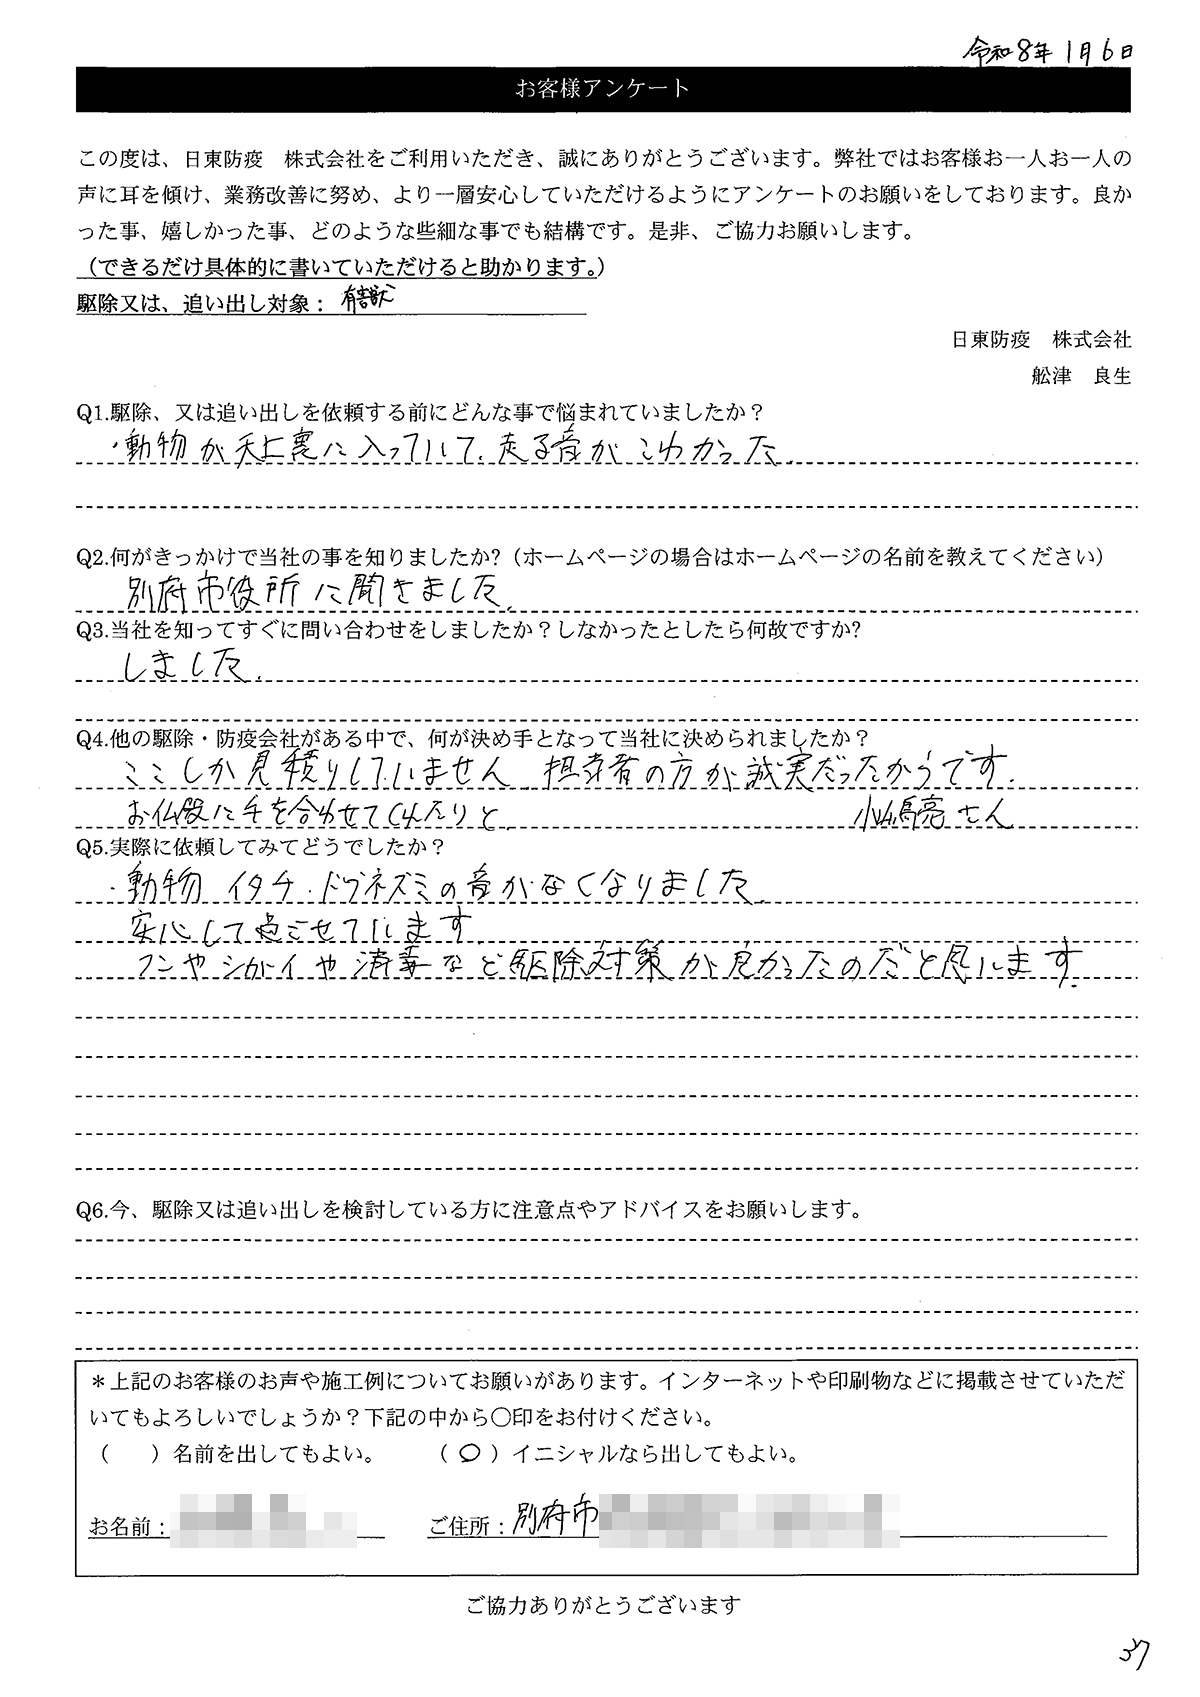 令和8年1月6日
お客様アンケート
この度は、日東防疫　株式会社をご利用いただき、誠にありがとうございます。弊社ではお客様お一人お一人の
声に耳を傾け、業務改善に努め、より一層安心していただけるようにアンケートのお願いをしております。良か
った事、嬉しかった事、どのような些細な事でも結構です。是非、ご協力お願いします。
（できるだけ具体的に書いていただけると助かります。）
駆除又は、追い出し対象：有害獣
日東防疫　株式会社
舩津　良生
Q1.駆除、又は追い出しを依頼する前にどんな事で悩まれていましたか？
・動物が天上裏に入っていて、走る音がこわかった。
Q2.何がきっかけで当社の事を知りましたか?（ホームページの場合はホームページの名前を教えてください）
別府市役所に聞きました。
Q3.当社を知ってすぐに問い合わせをしましたか？しなかったとしたら何故ですか?
しました。
Q4.他の駆除・防疫会社がある中で、何が決め手となって当社に決められましたか？
ここしか見積りしていません。担当者の方が誠実だったからです。
お仏段に手を合わせてくれたりと。　小嶋亮さん
Q5.実際に依頼してみてどうでしたか？
・動物 イタチ・ドブネズミの音がなくなりました。
安心して過ごせています。
フンやシガイや消毒など駆除対策が良かったのだと思います。
Q6.今、駆除又は追い出しを検討している方に注意点やアドバイスをお願いします。
＊上記のお客様のお声や施工例についてお願いがあります。インターネットや印刷物などに掲載させていただ
いてもよろしいでしょうか？下記の中から〇印をお付けください。
（　　）名前を出してもよい。　（ 〇 ）イニシャルなら出してもよい。
お名前：　ご住所：別府市
ご協力ありがとうございます
37